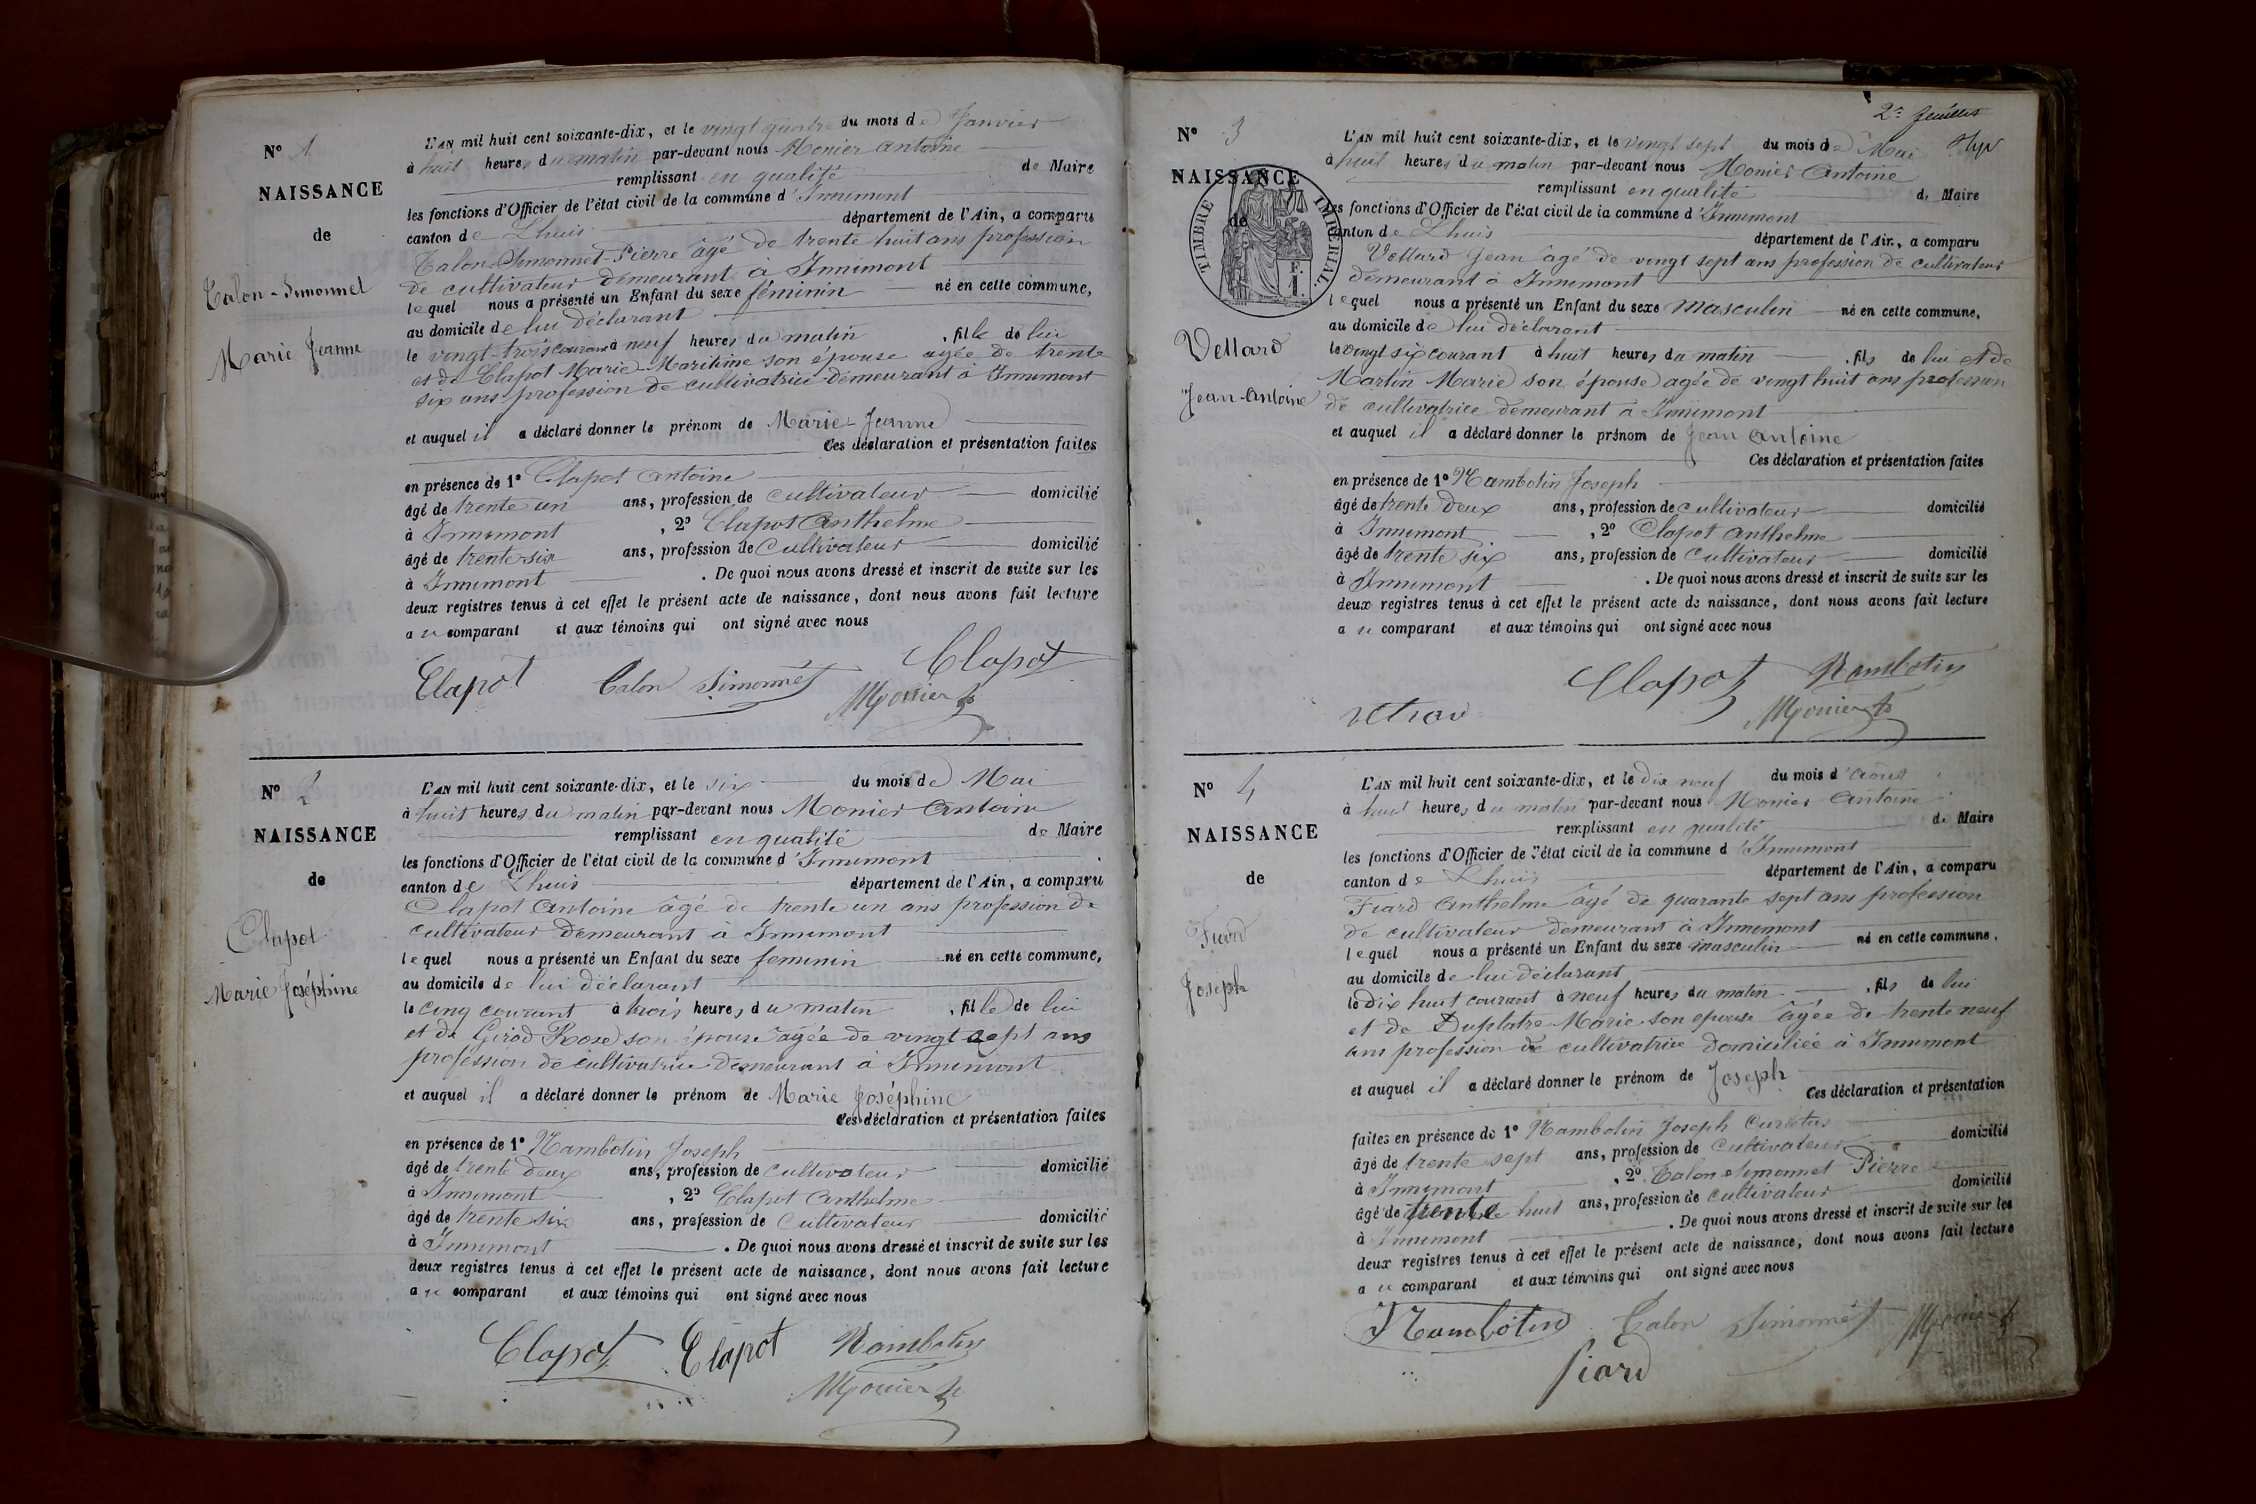 N° 1
NAISSANCE
de
Talon-Simonnet
Marie Jeanne
L'AN mil huit cent soixante-dix, et le vingt quatre du mois de Janvier
à huit heures du matin par-devant nous Monier Antoine
remplissant en qualité de Maire
les fonctions d'Officier de l'état civil de la commune d'Innimont
canton de Lhuis département de l'Ain, a comparu
Talon-Simonnet-Pierre âgé de trente huit ans profession
de cultivateur demeurant à Innimont
lequel nous a présenté un Enfant du sexe féminin né en cette commune,
au domicile de lui déclarant
le vingt-trois courant à neuf heures du matin, fille de lui
et de Clapot Marie son épouse agée de trente
six ans profession de cultivatrice demeurant à Innimont
et auquel il a déclaré donner le prénom de Marie-Jeanne
Ces déclaration et présentation faites
en présence de 1° Clapot Antoine
âgé de trente un ans, profession de cultivateur domicilié
à Innimont, 2° Clapot Anthelme
âgé de trente six ans, profession de cultivateur domicilié
à Innimont. De quoi nous avons dressé et inscrit de suite sur les
deux registres tenus à cet effet le présent acte de naissance, dont nous avons fait lecture
au comparant et aux témoins qui ont signé avec nous
Clapot Talon Simonnet Clapot
Monier
N° 2
NAISSANCE
de
Clapot
Marie Joséphine
L'AN mil huit cent soixante-dix, et le six du mois de Mai
à huit heures du matin par-devant nous Monier Antoine
remplissant en qualité de Maire
les fonctions d'Officier de l'état civil de la commune d'Innimont
canton de Lhuis département de l'Ain, a comparu
Clapot Antoine âgé de trente un ans profession de
cultivateur demeurant à Innimont
lequel nous a présenté un Enfant du sexe feminin né en cette commune,
au domicile de lui déclarant
le cinq courant à trois heures du matin, fille de lui
et de Girod Rose son épouse agée de vingt sept ans
profession de cultivatrice demeurant à Innimont
et auquel il a déclaré donner le prénom de Marie Joséphine
Ces déclaration et présentation faites
en présence de 1° Nambotin Joseph
âgé de trente deux ans, profession de cultivateur domicilié
à Innimont, 2° Clapot Anthelme
âgé de trente six ans, profession de Cultivateur domicilié
à Innimont. De quoi nous avons dressé et inscrit de suite sur les
deux registres tenus à cet effet le présent acte de naissance, dont nous avons fait lecture
au comparant et aux témoins qui ont signé avec nous
Clapot Clapot Nambotin
Monier
2e feuillet
N° 3
NAISSANCE
de
TIMBRE IMPERIAL.
F.
1.
Vettard
Jean-Antoine
L'AN mil huit cent soixante-dix, et le vingt sept du mois de Mai
à huit heures du matin par-devant nous Monier Antoine
remplissant en qualité de Maire
les fonctions d'Officier de l'état civil de la commune d'Innimont
canton de Lhuis département de l'Ain, a comparu
Vettard Jean âgé de vingt sept ans profession de cultivateur
demeurant à Innimont
lequel nous a présenté un Enfant du sexe Masculin né en cette commune,
au domicile de lui déclarant
le vingt six courant à huit heures du matin, fils de lui et de
Martin Marie son épouse agée de vingt huit ans profession
de cultivatrice demeurant à Innimont
et auquel il a déclaré donner le prénom de Jean Antoine
Ces déclaration et présentation faites
en présence de 1° Nambotin Joseph
âgé de trente deux ans, profession de cultivateur domicilié
à Innimont, 2° Clapot Anthelme
âgé de trente six ans, profession de cultivateur domicilié
à Innimont. De quoi nous avons dressé et inscrit de suite sur les
deux registres tenus à cet effet le présent acte de naissance, dont nous avons fait lecture
au comparant et aux témoins qui ont signé avec nous
Clapot Nambotin
Monier
N° 4
NAISSANCE
de
Fiard
Joseph
L'AN mil huit cent soixante-dix, et le dix neuf du mois d'Août
à huit heures du matin par-devant nous Monier Antoine
remplissant en qualité de Maire
les fonctions d'Officier de l'état civil de la commune d'Innimont
canton de Lhuis département de l'Ain, a comparu
Fiard Anthelme âgé de quarante sept ans profession
de cultivateur demeurant à Innimont
lequel nous a présenté un Enfant du sexe masculin né en cette commune,
au domicile de lui déclarant
le Dix huit courant à neuf heures du matin, fils de lui
et de Duplatre Marie son epouse âgée de trente neuf
ans profession de cultivatrice domiciliée à Innimont
et auquel il a déclaré donner le prénom de Joseph
Ces déclaration et présentation
faites en présence de 1° Nambotin Joseph
âgé de trente sept ans, profession de cultivateur domicilié
à Innimont, 2° Talon Simonnet Pierre
âgé de trente huit ans, profession de cultivateur domicilié
à Innimont. De quoi nous avons dressé et inscrit de suite sur les
deux registres tenus à cet effet le présent acte de naissance, dont nous avons fait lecture
au comparant et aux témoins qui ont signé avec nous
Nambotin Talon Simonnet Monier
fiard